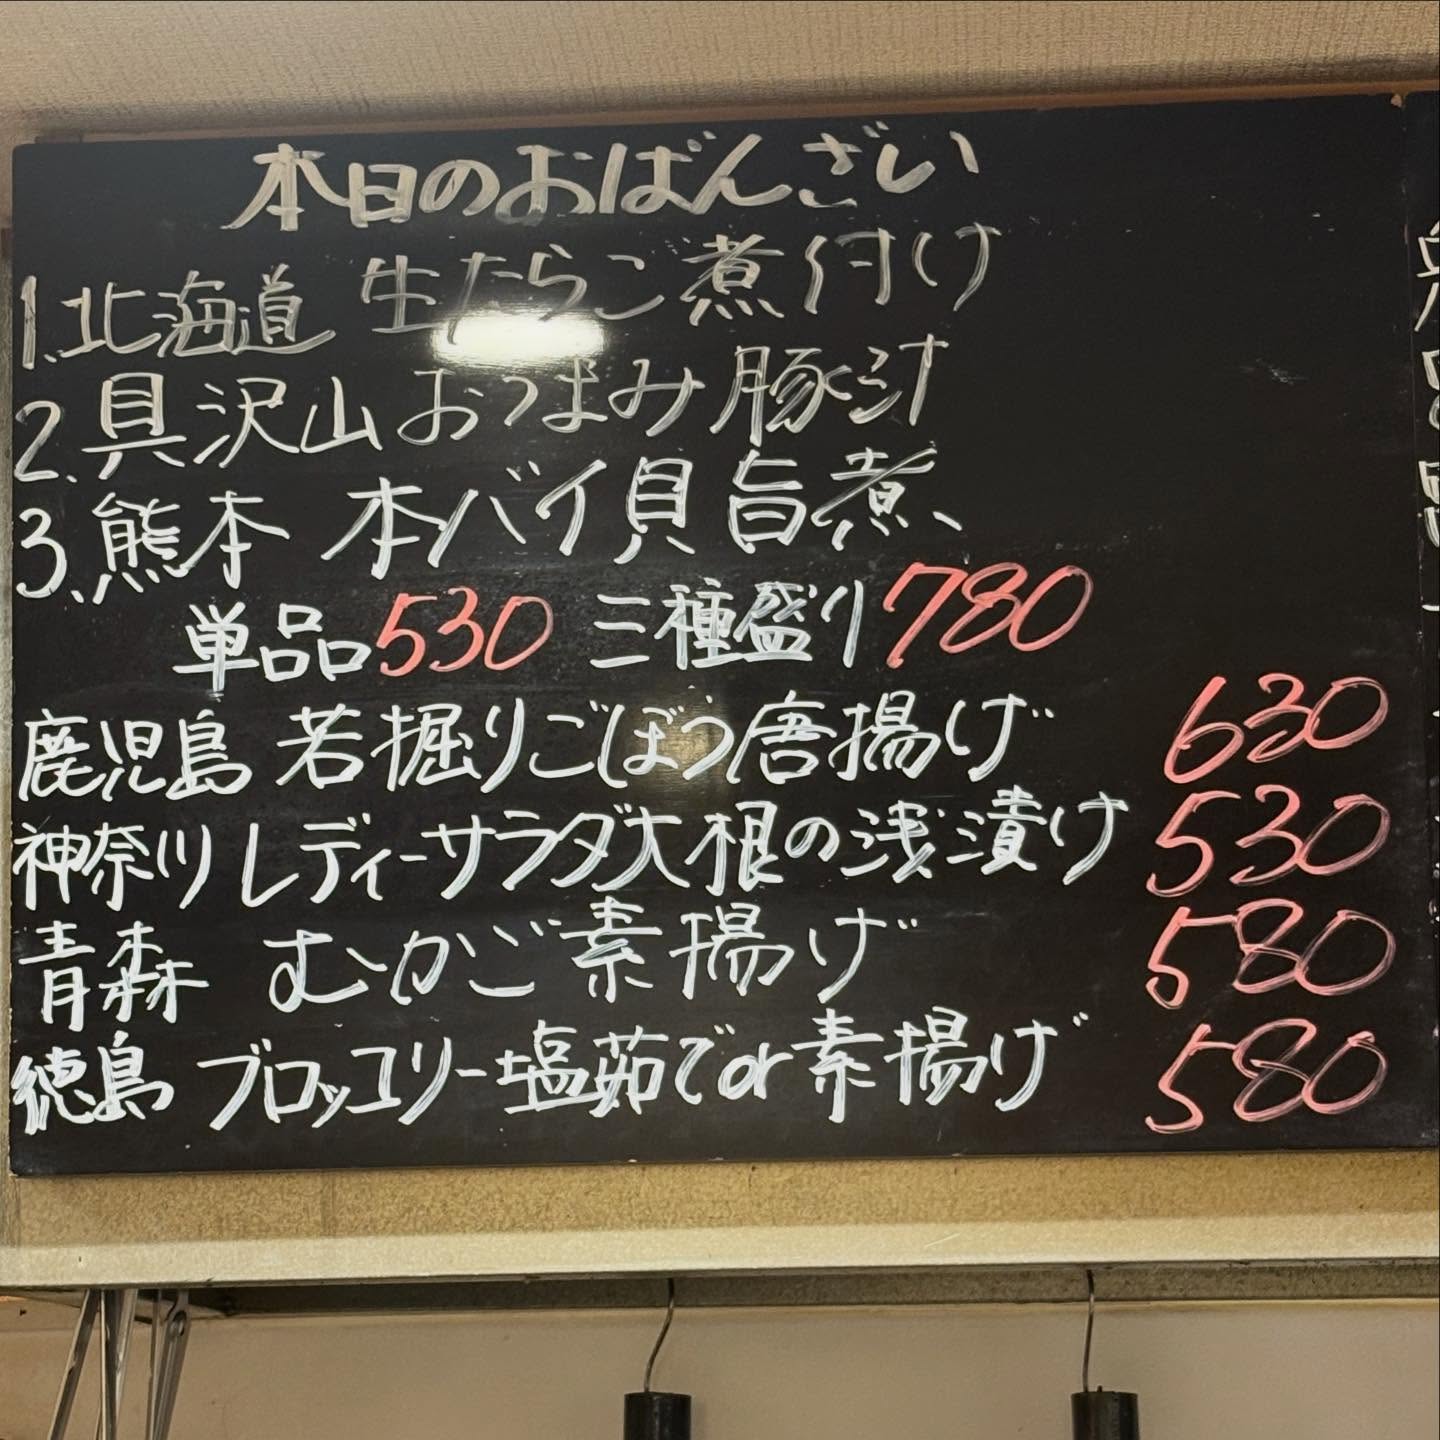 本日のおばんざい
1.北海道 生たらご煮付け
2.具沢山おつまみ豚汁
3.熊本 本バイ貝旨煮
単品530 三種盛り780
鹿児島 若掘りごぼう唐揚げ 630
神奈川 レディーサラダ大根の浅漬け 530
青森 むかご素揚げ 580
徳島 ブロッコリー塩茹でor素揚げ 580